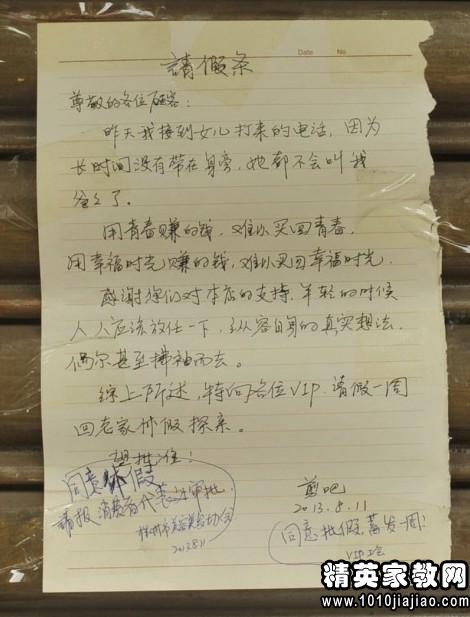 Date No
請假条
尊敬的各位顾客：
昨天我接到女儿打来的电话，因为
长时间没有带在身旁，她都不会叫我
爸爸了。
用青春赚的钱，难以买回青春，
用幸福时光赚的钱，难以买回幸福时光。
感谢你们对本店的支持，年轻的时候
人人应该放任一下，纵容自身的真实想法，
偶尔甚至拂袖而去。
综上所述，特向各位VIP请假一周
回老家休假探亲。
望批准！
剪吧
2013.8.11
同意休假
请报消费者代表过审批
2013.8.11
同意批假，蓄发一周！
VIP
精英家教网
www.1010jiajiao.com